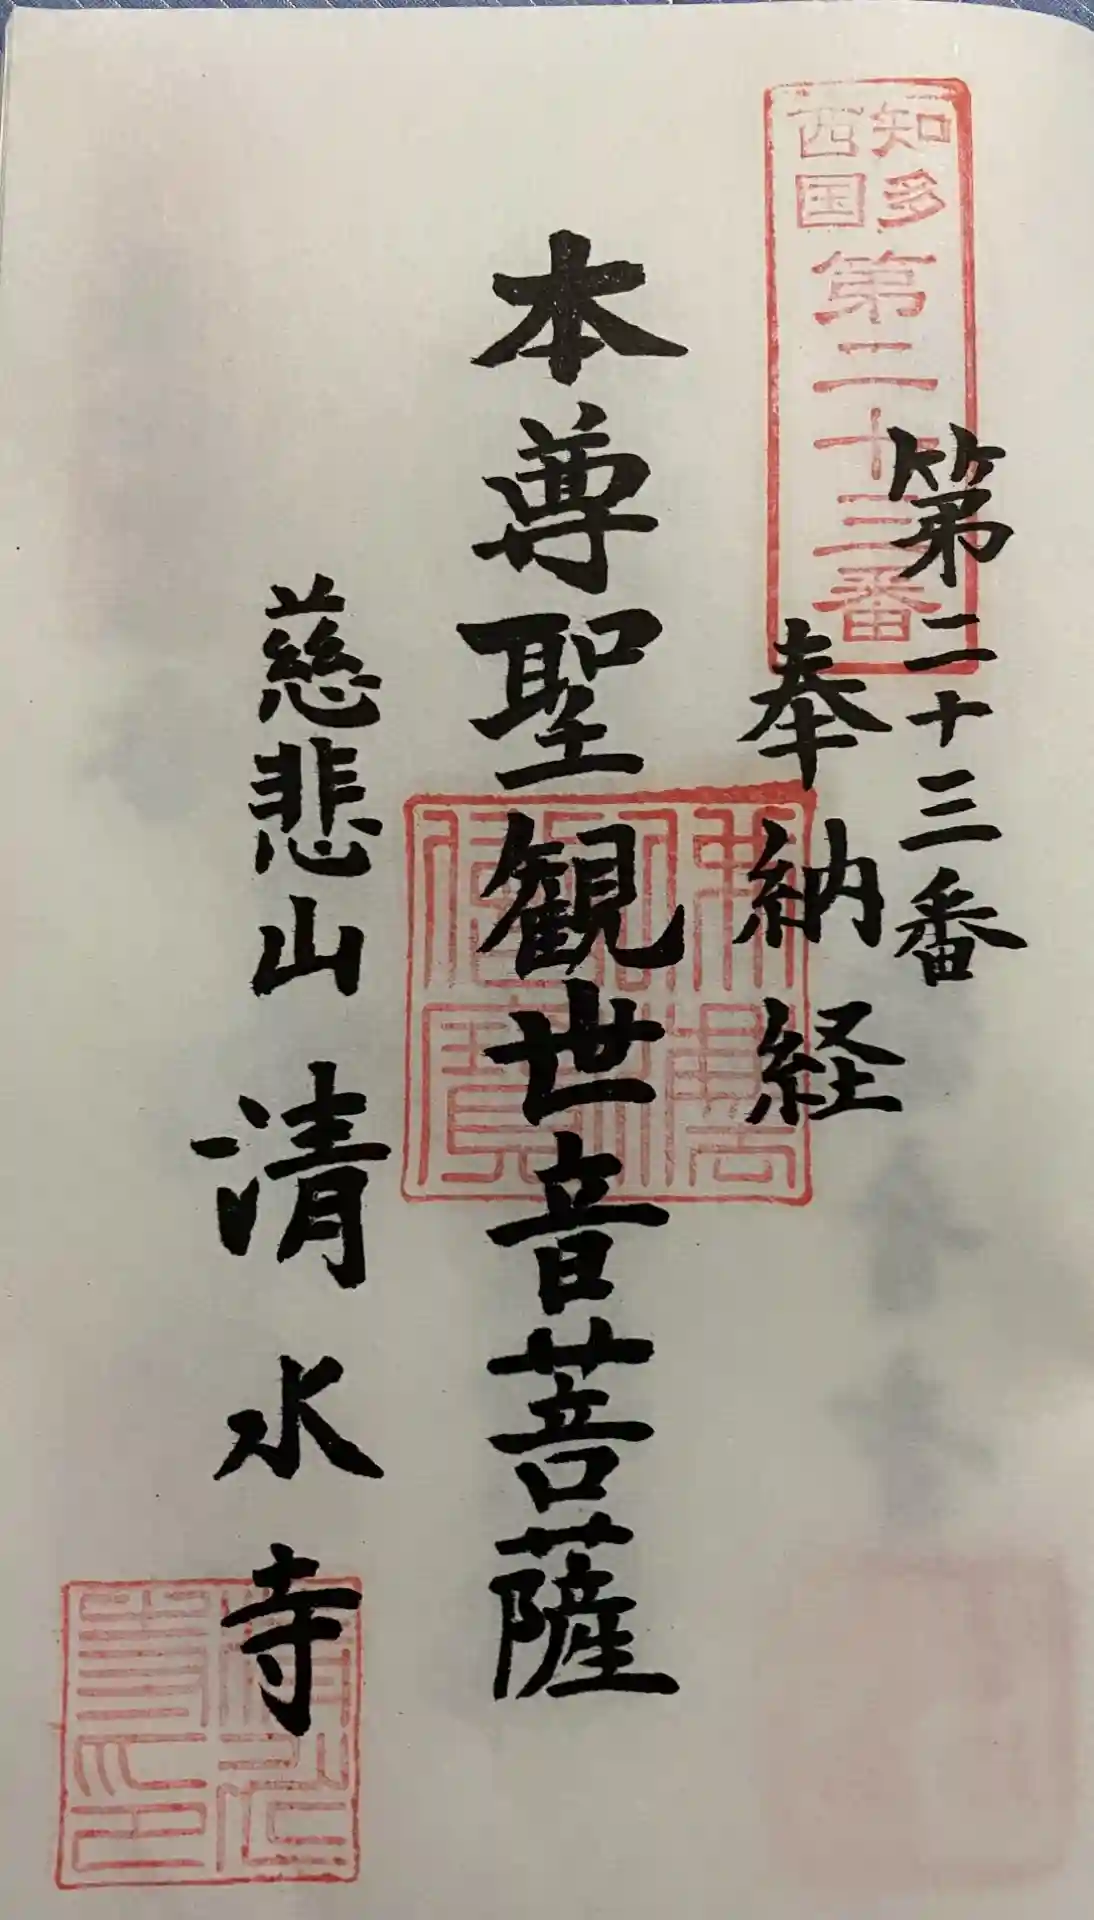 知多
西国
第二十三番
第二十三番
奉納経
本尊聖観世音菩薩
慈悲山 清水寺